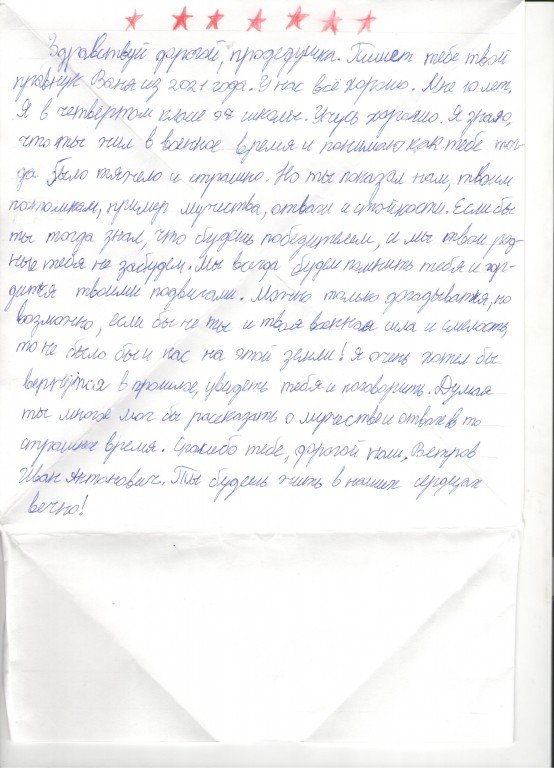 Здравствуй дорогой, прадедушка. Пишет тебе твой
правнук Ваня из 2021 года. У нас всё хорошо. Мне 10 лет.
Я в четвёртом класе 27 школы. Учусь хорошо. Я знаю,
что ты жил в военное время и понимаю как тебе тог-
да было тяжело и страшно. Но ты показал нам, твоим
потомкам, пример мужества, отваги и стойкости. Если бы
ты тогда знал, что будешь победителем, и мы твои род-
ные тебя не забудем. Мы всегда будем помнить тебя и гор-
дится твоими подвигами. Можно только догадыватся, но
возможно, если бы не ты и твоя военная сила и смелость,
то не было бы и нас на этой земли! Я очень хотел бы
вернутся в прошлое, увидеть тебя и поговорить. Думая
ты многое мог бы рассказать о мужестве и отваге в то
страшное время. Спасибо тебе, дорогой наш, Ветров
Иван Антонович. Ты будешь жить в наших сердцах
вечно!